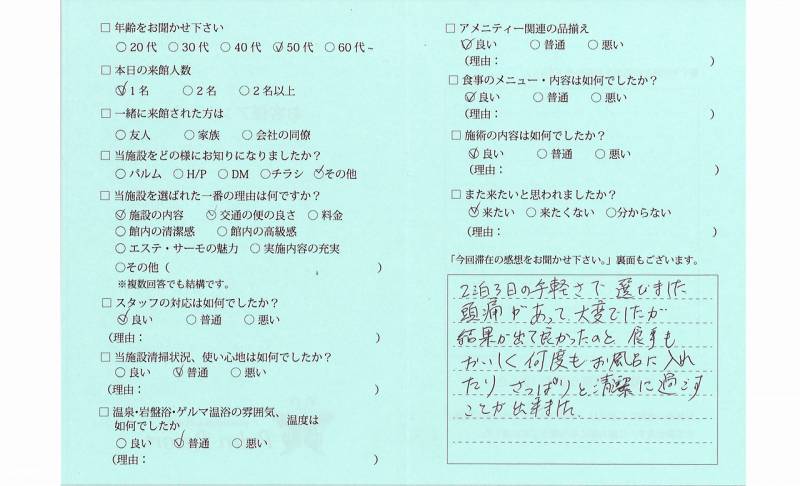 □ 年齢をお聞かせ下さい
○20代 ○30代 ○40代 ○50代 ○60代~
□ 本日の来館人数
○1名 ○2名 ○2名以上
□ 一緒に来館された方は
○友人 ○家族 ○会社の同僚
□ 当施設をどの様にお知りになりましたか?
○パルム ○H/P ○DM ○チラシ ○その他
□ 当施設を選ばれた一番の理由は何ですか?
○施設の内容 ○交通の便の良さ ○料金
○館内の清潔感 ○館内の高級感
○エステ・サーモの魅力 ○実施内容の充実
○その他( )
※複数回答でも結構です。
□ スタッフの対応は如何でしたか?
○良い ○普通 ○悪い
(理由: )
□ 当施設清掃状況、使い心地は如何でしたか?
○良い ○普通 ○悪い
(理由: )
□ 温泉・岩盤浴・ゲルマ温浴の雰囲気、温度は
如何でしたか
○良い ○普通 ○悪い
(理由: )
□ アメニティー関連の品揃え
○良い ○普通 ○悪い
(理由: )
□ 食事のメニュー・内容は如何でしたか?
○良い ○普通 ○悪い
(理由: )
□ 施術の内容は如何でしたか?
○良い ○普通 ○悪い
(理由: )
□ また来たいと思われましたか?
○来たい ○来たくない ○分からない
(理由: )
「今回滞在の感想をお聞かせ下さい。」裏面もございます。
2泊3日の手軽さで 選びました
頭痛があって 大変でしたが
結果が出て良かったのと 食事も
おいしく 何度も お風呂に入れ
たり さっぱりと 清潔に過ごす
ことが出来ました